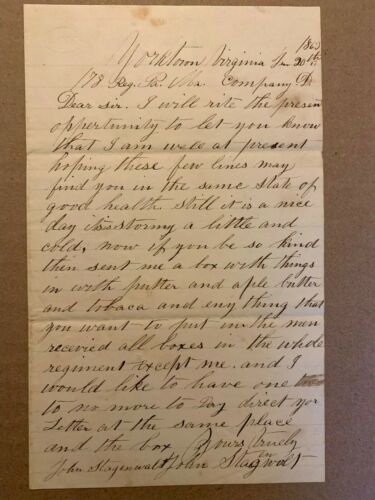 1863
Yorktown Virginia Jan 20th
178 Reg. Pa. Ma. Company D
Dear sir. I will rite the presen
oppertunity to let you know
that I am well at present
hoping these few lines may
find you in the same state of
good health still it is a nice
day its stormy a little and
cold. now if you be so kind
then sent me a box with things
in with putter and aple butter
and tobaca and eny thing that
you want to put in the men
recevied all boxes in the whole
regiment except me. and I
would like to have one
to no more to Day direct yor
Letter at the same place
and the box Yours truely
John Stagenwalt John Stagenwolt